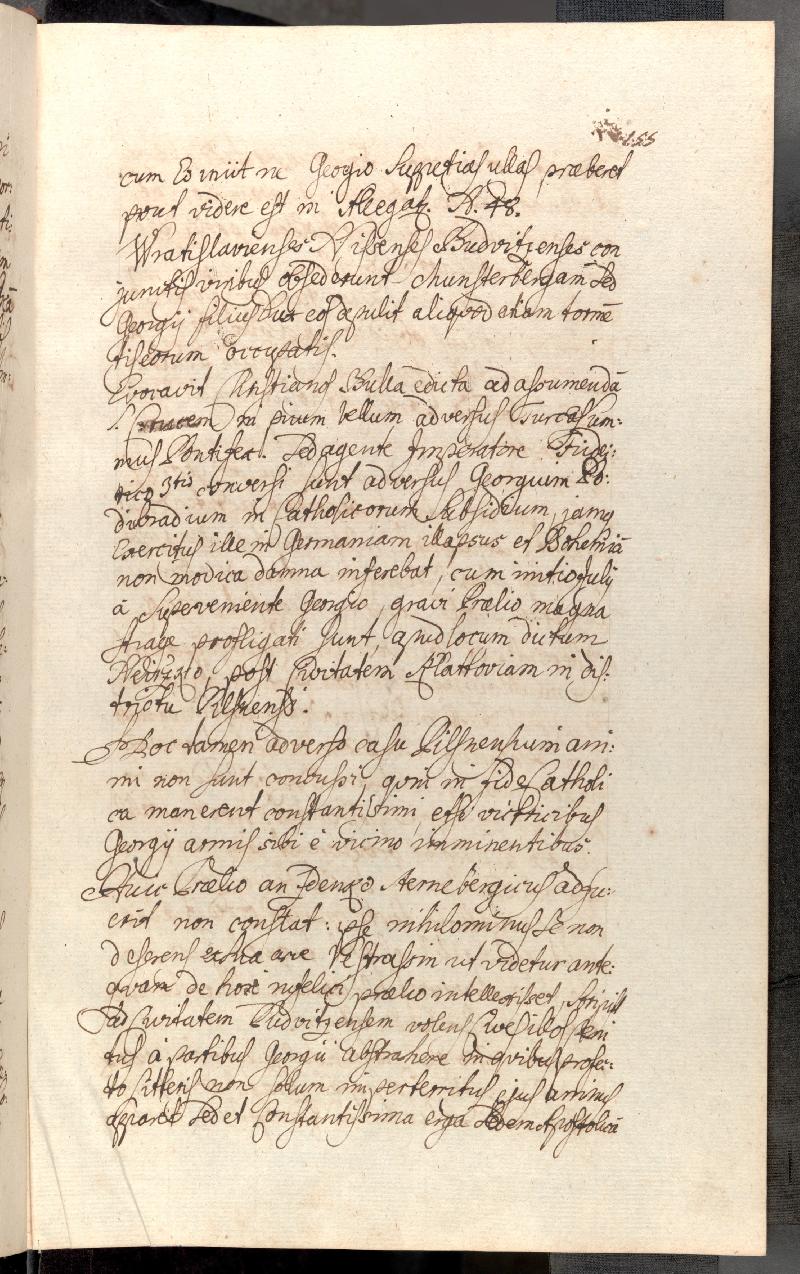 155
cum Eo iniit ne Georgio Suppetias ullas præberet
prout videre est in Allegat. N. 48.
Wratislavienses Nissenses Budvitzenses con
junctis viribus obsederunt Munsterbergam sed
Georgij filius Dux eos repulit aliquod etiam tormē
tis eorum occupatis.
Evocavit Christianos Bulla edicta ad assumendā
Crucem in pium bellum adversus Turcas Sum:
mus Pontifex. Sed agente Imperatore Fride:
rico 3tio conversi sunt adversus Georgium Po:
diebradium in Catholicorum Subsidium, jamq
Exercitus ille in Germaniam illapsus et Bohemiā
non modica damna inferebat, cum initio Julij
á Superveniente Georgio, gravi Prælio magna
strage profligati sunt, apud locum dictum
post Civitatem Klattoviam in dis:
trictu Pilsnensi.
Hoc tamen adverso casu Pilsnensium ani:
mi non sunt concussi, qvin in fide Catholi
ca manerent constantissimi, etsi victricibus
Georgij armis sibi é vicino imminentibus.
Huic Prælio an Zdenko Sternebergicus adfu:
erit non constat: ipse nihilominus se non
deserens ex sua arce ut videtur ante:
qvam de hoc infelici prælio intellexisset, scripsit
ad Civitatem Budvitzensem volens Cives illos peni
tus á partibus Georgii abstrahere in qvibus profec:
to litteris non solum imperterritus ejus animus
apparet sed et Constantissima erga Sedem Apostolicā